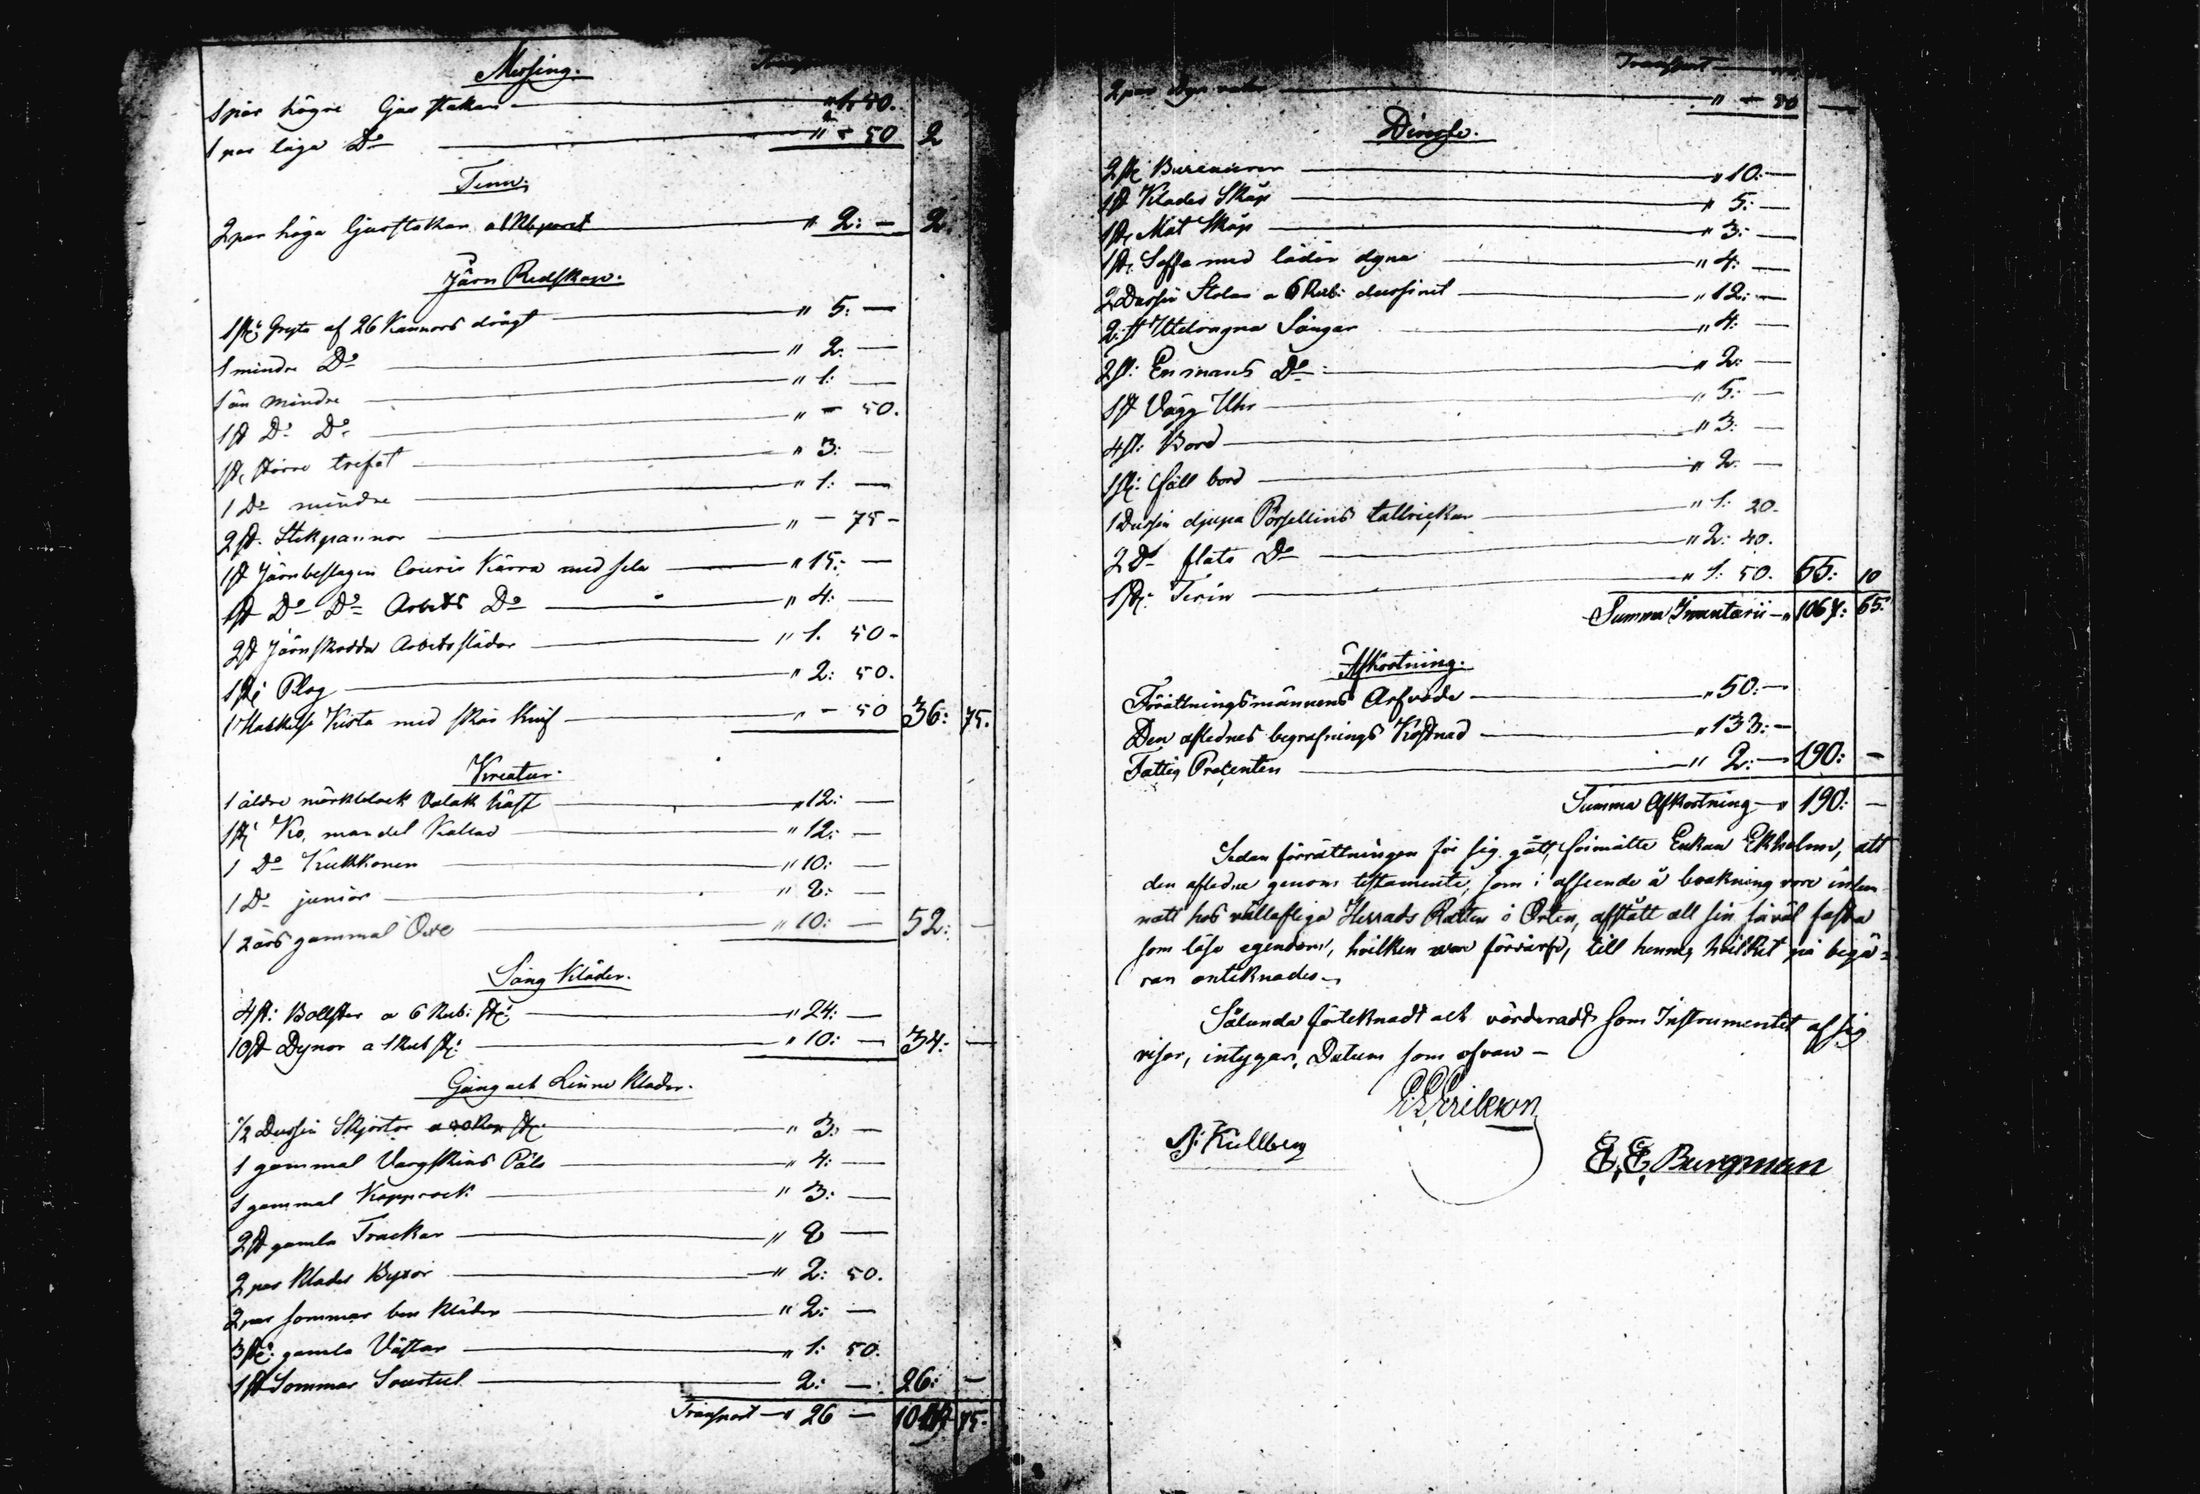 Messing.
1 par högre Ljusstakar — " 1: 50.
1 par låga Do — " - 50 2
Tenn.
2 par höga Ljusstakar a 1 Rb paret — " 2: — 2.
Järn Redskap.
1 st: Gryta af 26 Kannors drägt — " 5: —
1 mindre Do — " 2: —
1 än mindre — " 1: —
1 st Do Do — " - 50.
1 st, större trefot — " 3: —
1 Do mindre — " 1: —
2 st. Stekpannor — " - 75 -
1 st Järnbeslagen Courir Kärra med sela — " 15: —
1 st Do Do Arbets Do — " 4: —
2 st Järnskodda Arbetsslädar — " 1. 50 -
1 st: Plog — " 2: 50.
1 Hakkelse Kista med skär Knif — " - 50 36: 75.
Kreatur.
1 äldre mörkblack Valak häst — " 12: —
1 st: Ko, mandel Kallad — " 12: —
1 Do Kukkonen — " 10: —
1 Do junior — " 8: —
1 2 års gammal Oxe — " 10: — 52: —
Säng Kläder.
4 st: Bollster a 6 Rub: st: — " 24: —
10 st Dynor a 1 Rub st: — " 10: — 34: —
Gång och Linne Kläder.
1/2 Dussin Skjortor — " 3: —
1 gammal Vargskins Päls — " 4: —
1 gammal Kapprock — " 3: —
2 st gamla Frackar — " 8 —
2 par Klädes Byxor — " 2: 50.
2 par sommar ben kläder — " 2: —
3 st: gamla Västar — " 1: 50.
1 st Sommar Sourtut — 2: — 26: —
Transport — " 26 — 75.
Transport —
2 par — " — 50 —
Diverse.
2 st Bureaurer — " 10: —
1 st Klädes Skåp — " 5: —
1 st, Mat Skåp — " 3: —
1 st, Soffa med läder dyna — " 4: —
2 Dussin Stolar a 6 Rub: dussinet — " 12: —
2: st Utdragna Sängar — " 4: —
2 st: Enmans Do — " 2: —
1 st Vägg Uhr — " 5: —
4 st: Bord — " 3: —
1 st: Fäll bord — " 2: —
1 Dussin djupa Porsellins tallrickar — " 1: 20.
2 Do flata Do — " 2: 40.
1 st: Terin — " 1: 50. 55: 10
Summa Inventarii — " 1067: 65.
Afkortning.
Förättningsmännens Arfvode — " 50: —
Den aflednes begrafnings Kostnad — " 138: —
Fattig Procenten — " 2: — 190: —
Summa Afkortning — " 190: —
Sedan förrättningen för sig gått, förmälte Enkan Ekholm, att
den afledne genom testamente, som i afseende å bevakning vore inläm
nadt hos vällofliga Herrads Rätten i Orten, afstått all sin såväl fasta
som lösa egendom, hvilken var förvärfd, till henne, hvilket på begä=
ran anteknades. —
Sålunda förteknadt och värderadt som Instrumentet af sig
visar, intygar. Datum som ofvan —
Erikson
Kullberg
E, E, Bergman